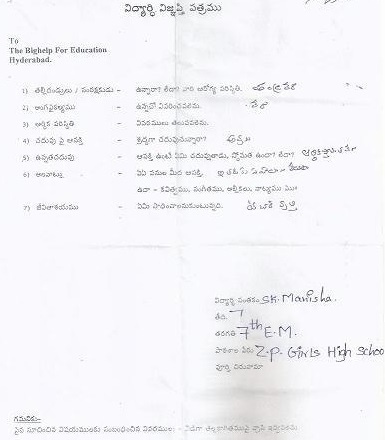 విద్యార్థి విజ్ఞప్తి పత్రము
To
The Bighelp For Education
Hyderabad.
1) తల్లిదండ్రులు / సంరక్షకుడు – ఉన్నారా? లేదా? వారి ఆరోగ్య పరిస్థితి.
2) అంగవైకల్యము – ఉన్నచో వివరించవలెను.
3) ఆర్థిక పరిస్థితి – వివరములు తెలుపవలెను.
4) చదువు పై ఆసక్తి – శ్రద్ధగా చదువుచున్నారా?
5) ఉన్నతచదువు – ఆసక్తి ఉంటే ఏమి చదువుతాడు, స్తోమత ఉందా? లేదా?
6) అలవాట్లు – ఏ ఏ పనుల మీద ఆసక్తి.
ఉదా – కవిత్వము, సంగీతము, అల్లికలు, నాట్యము
7) జీవితాశయము – ఏమి సాధించాలనుకుంటున్నది.
విద్యార్థి సంతకం SK. Manisha.
తేది. 7
తరగతి 7th E.M.
పాఠశాల పేరు Z.P. Girls High School
పూర్తి చిరునామా
గమనిక:-
పైన సూచించిన విషయములకు సంబంధించిన వివరములు